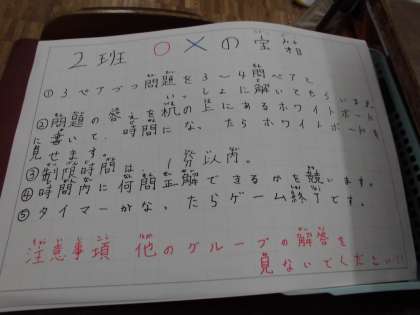 2班 ○×の宝箱
①3ペアづつ問題を3〜4問ペアと
いっしょに解いてもらいます
②問題の答えを机の上にあるホワイトボード
に書いて、時間になったらホワイトボードを
見せます。
③制限時間は 1分以内。
④時間内に何問正解できるかを競います。
⑤タイマーがなったらゲーム終了です。
注意事項 他のグループの解答を
見ないでください!!